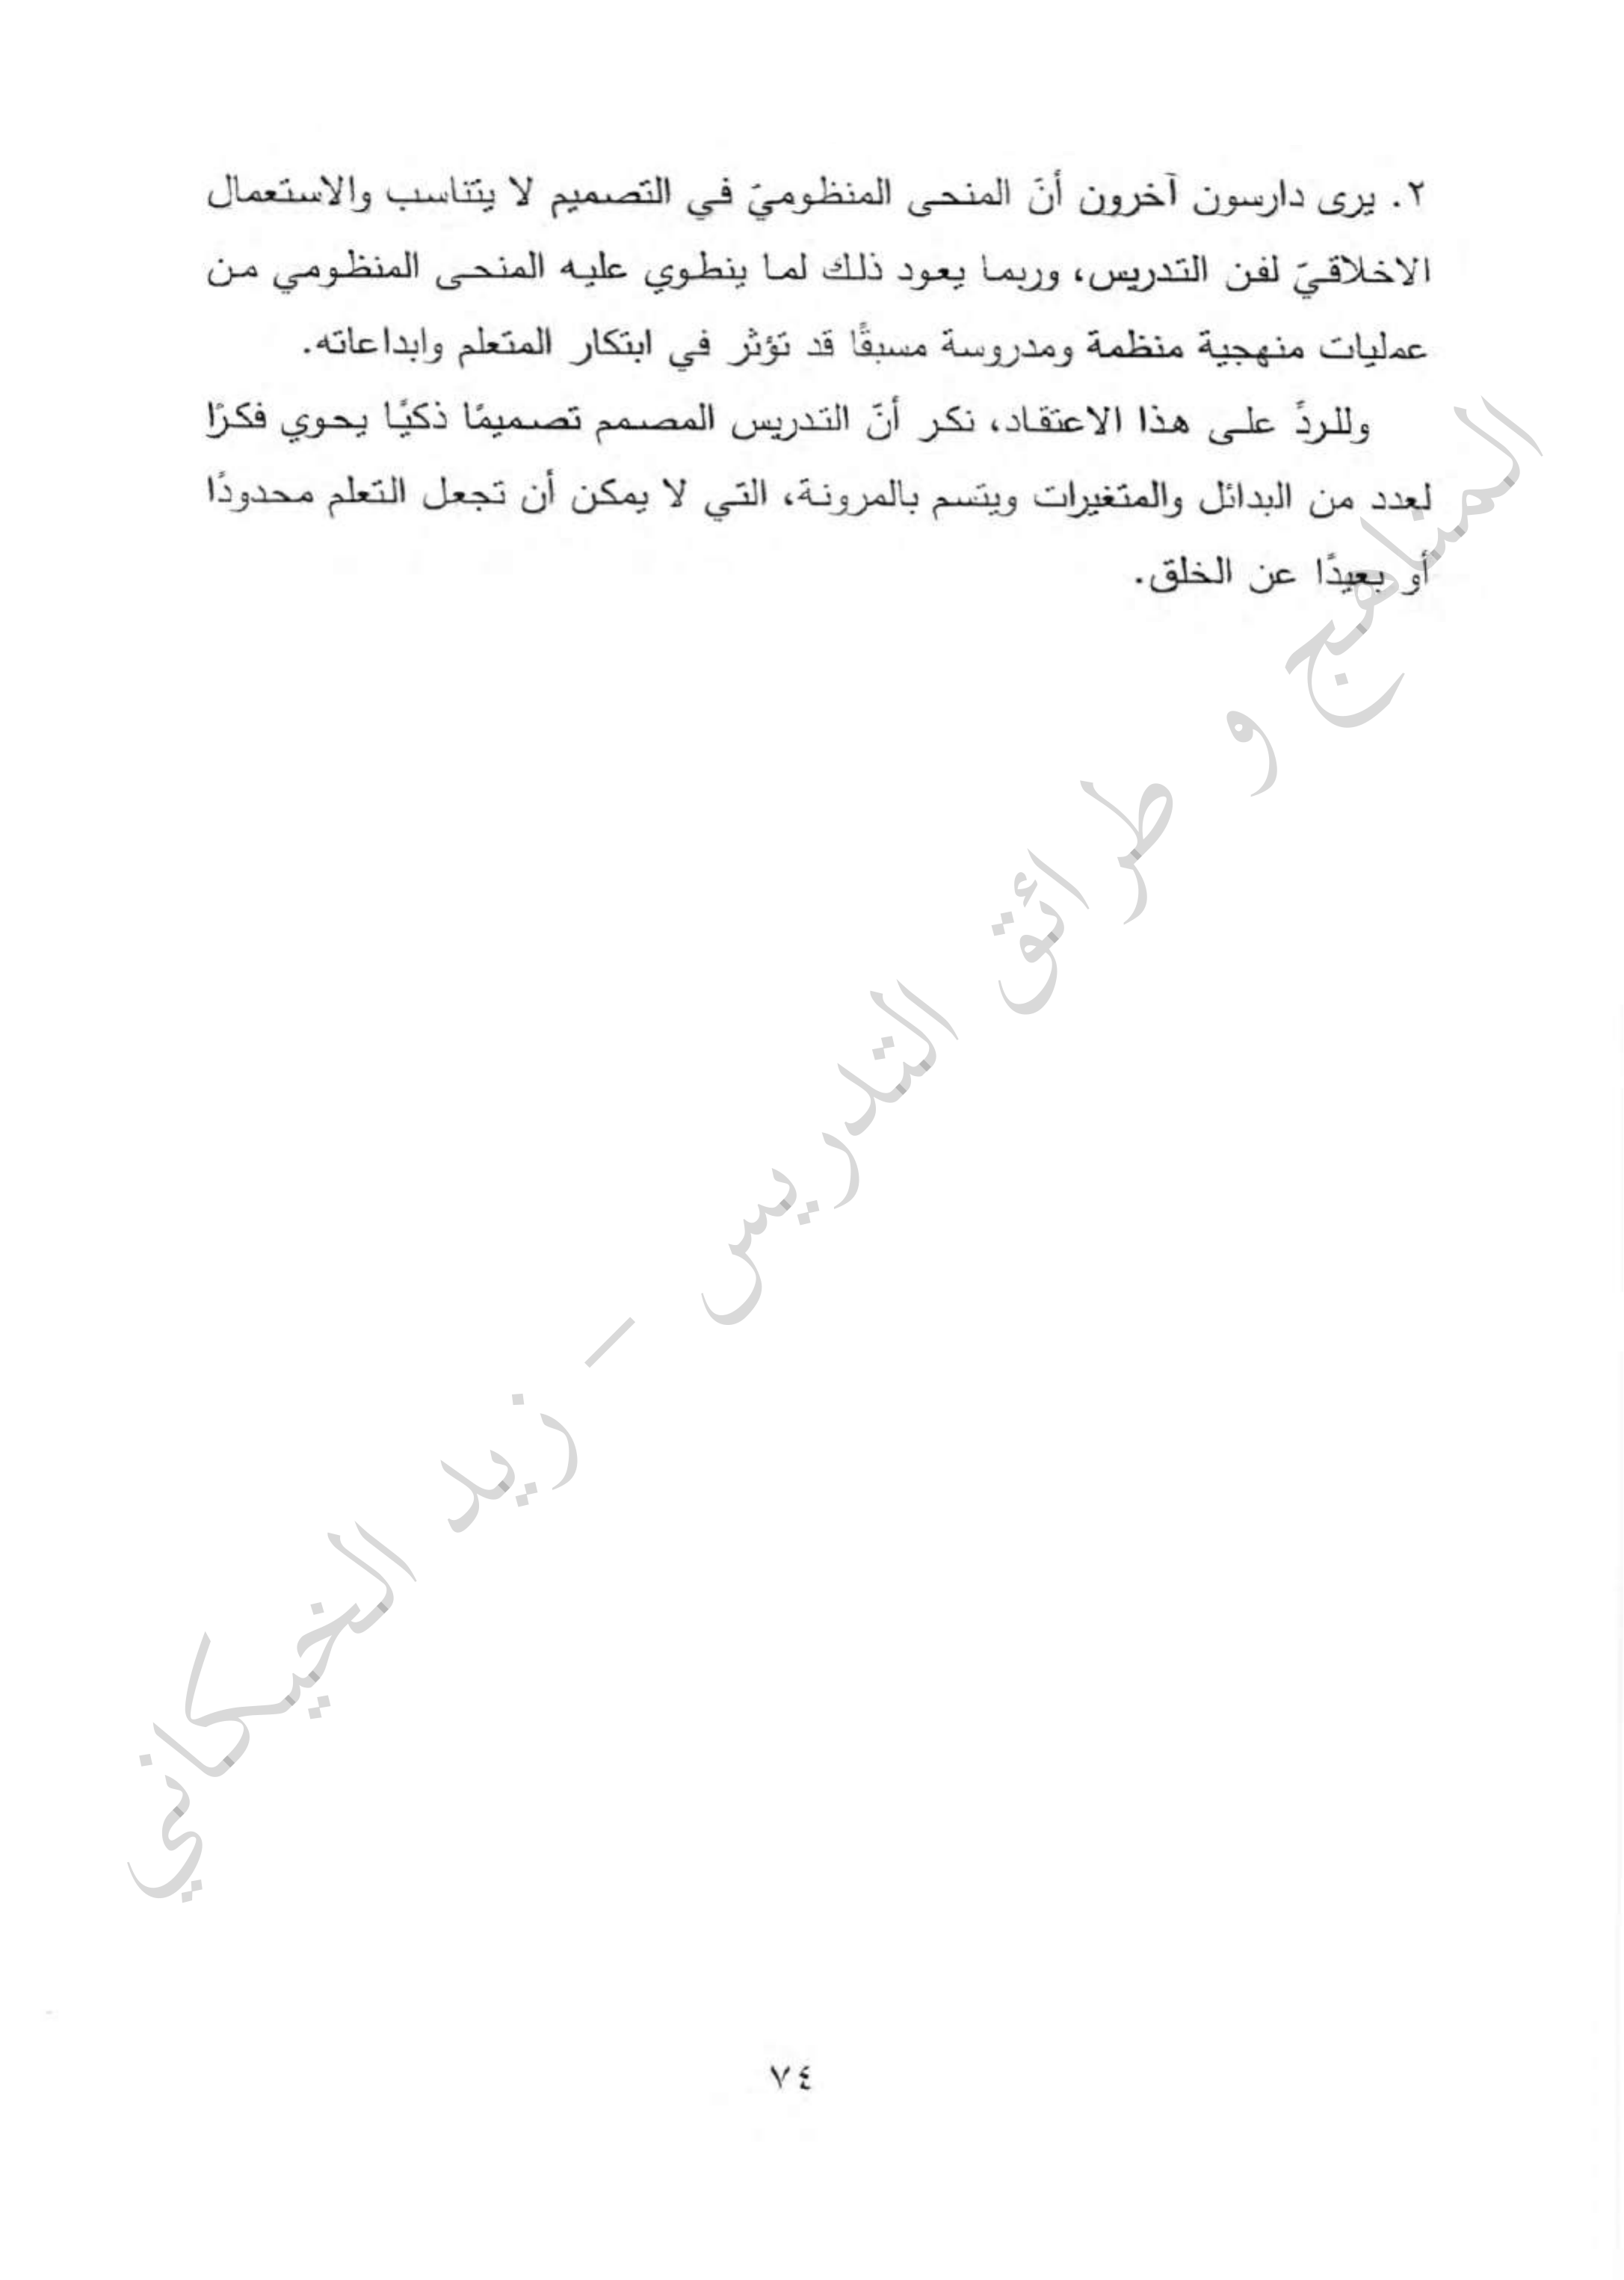 ٢. يرى دارسون آخرون أنّ المنحى المنظوميّ في التصميم لا يتناسب والاستعمال
الاخلاقيّ لفن التدريس، وربما يعود ذلك لما ينطوي عليه المنحى المنظومي من
عمليات منهجية منظمة ومدروسة مسبقًا قد تؤثر في ابتكار المتعلم وابداعاته.
وللردّ على هذا الاعتقاد، نكر أنّ التدريس المصمم تصميمًا ذكيًا يحوي فكرًا
لعدد من البدائل والمتغيرات ويتسم بالمرونة، التي لا يمكن أن تجعل التعلم محدودًا
أو بعيدًا عن الخلق.
المناهج و طرائق التدريس – زيد الخيكاني
٧٤